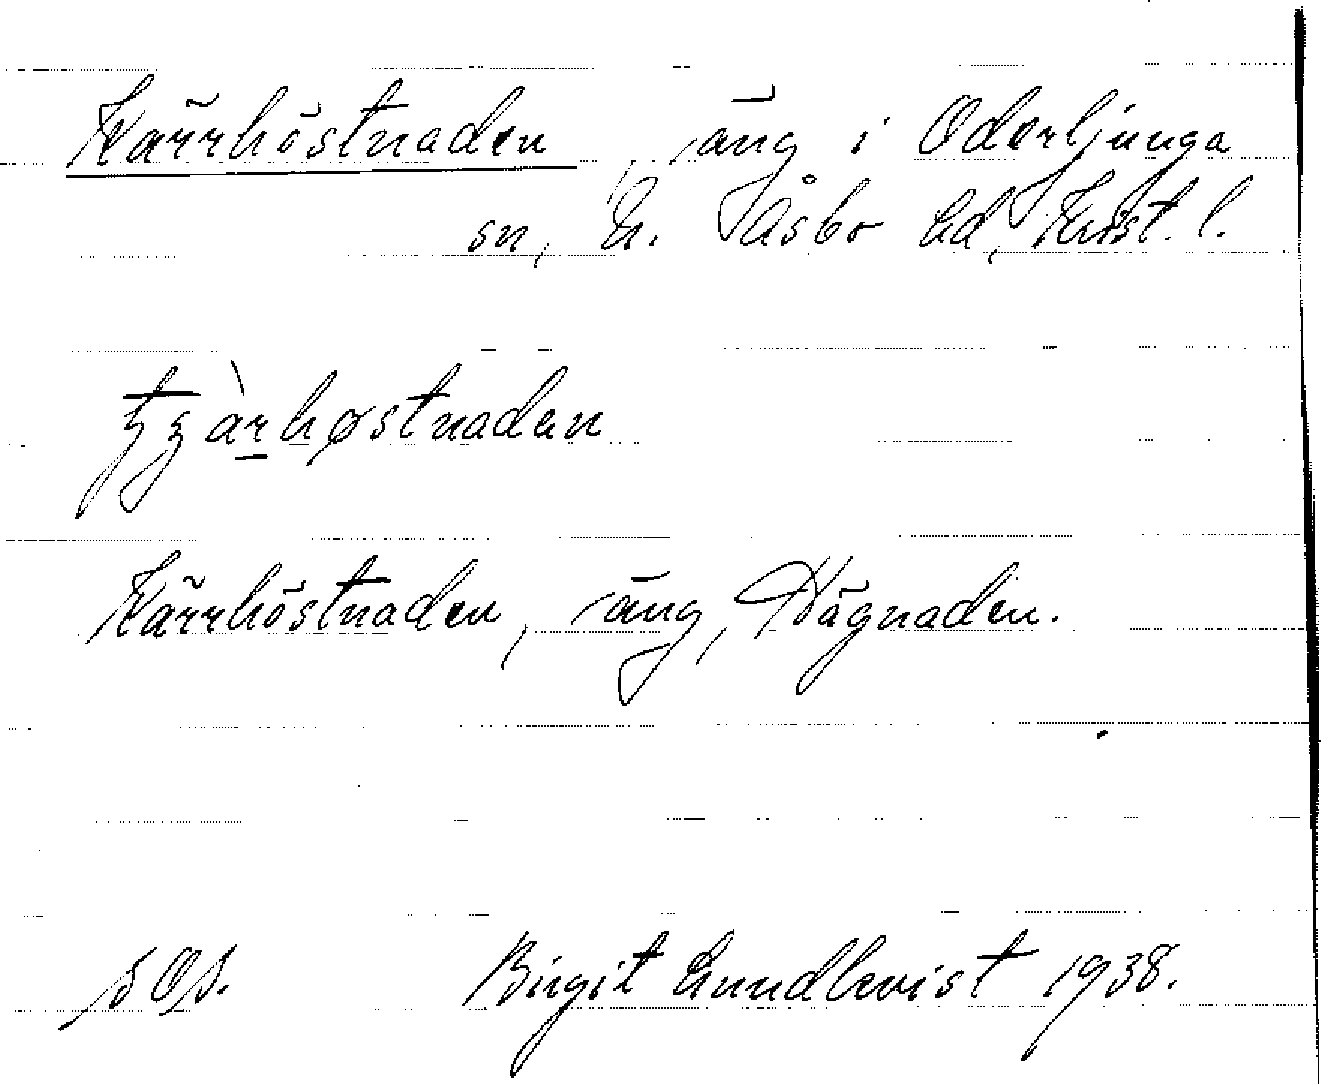 Kärrhöstnaden, äng i Oderljunga
sn, N. Åsbo hd, Krist. l.
tʒàrhøstnaden
Kärrhöstnaden, äng, Hägnaden.
Birgit Lundkvist 1938.